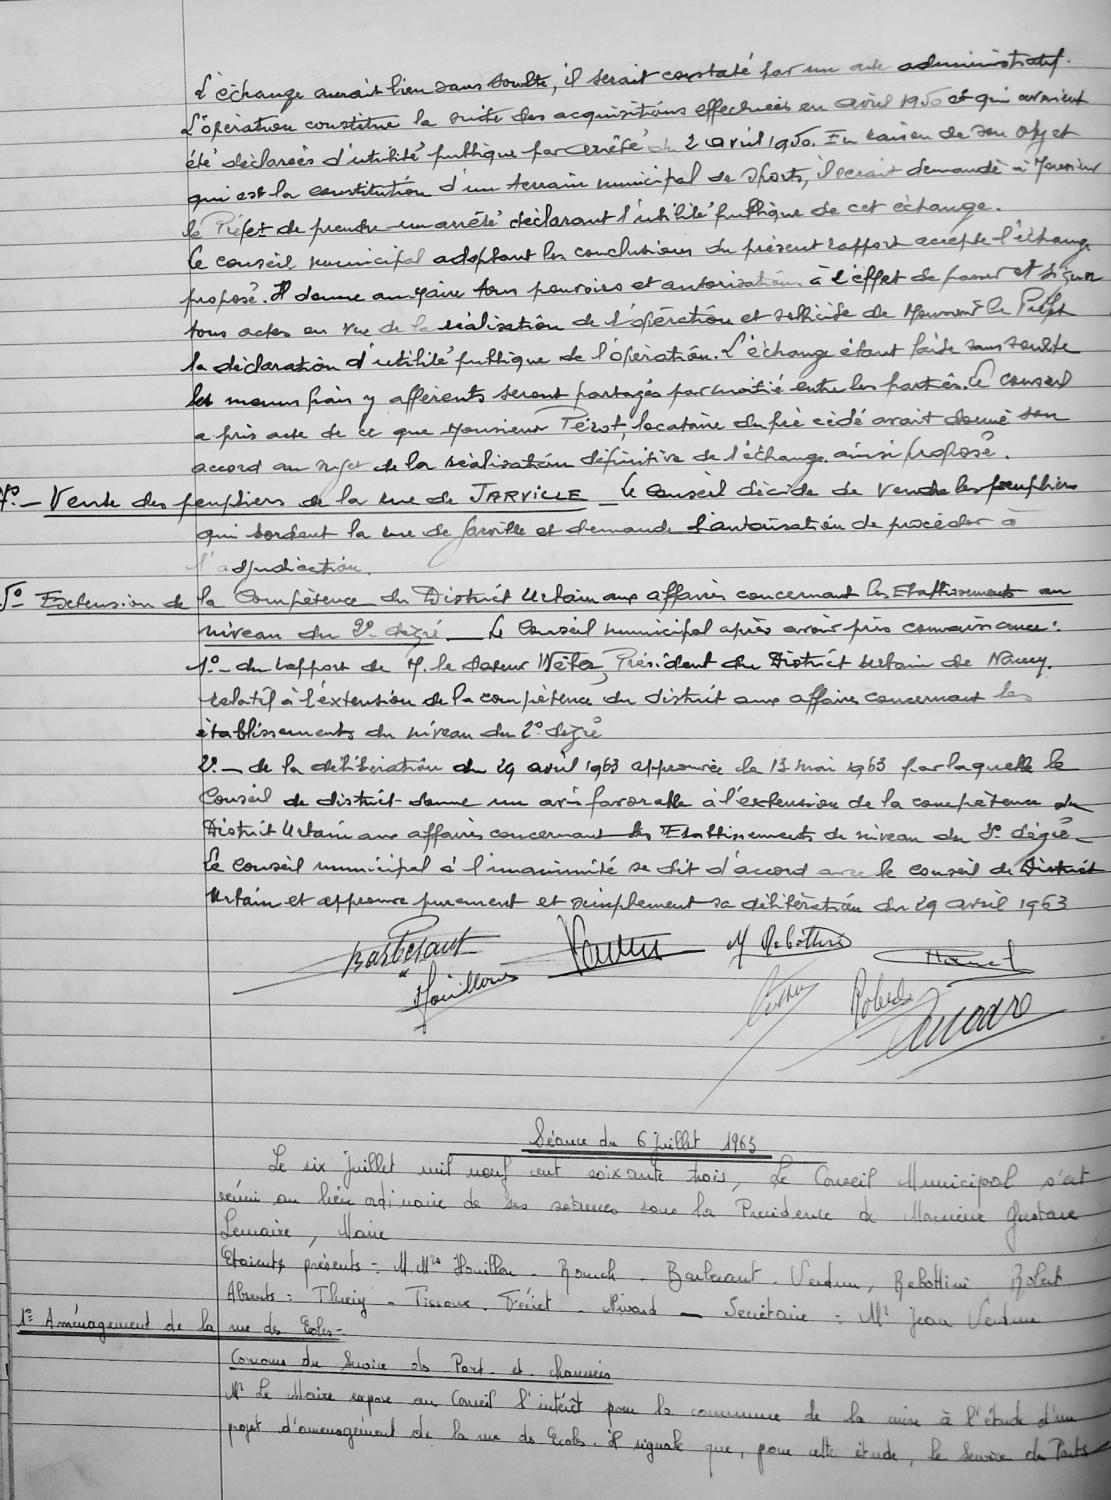 L'échange aurait lieu sans soulte, il serait constaté par un acte administratif.
L'opération constitue la suite des acquisitions effectuées en avril 1950 et qui avaient
été déclarées d'utilité publique par arrêté du 2 avril 1950. En raison de son objet
qui est la constitution d'un terrain municipal de sports, il serait demandé à Monsieur
le Préfet de prendre un arrêté déclarant l'utilité publique de cet échange.
Le conseil municipal adoptant les conclusions du présent rapport accepte l'échange
proposé. Il donne au Maire tous pouvoirs et autorisations à l'effet de passer et signer
tous actes en vue de la réalisation de l'opération et sollicite de Monsieur le Préfet
la déclaration d'utilité publique de l'opération. L'échange étant faite sans soulte
les menus frais y afférents seront partagés par moitié entre les parties. Le conseil
a pris acte de ce que Monsieur Pérot, locataire du pré cédé avait donné son
accord au sujet de la réalisation définitive de l'échange ainsi proposé.
- Vente des peupliers de la rue de JARVILLE - Le Conseil décide de vendre les peupliers
qui bordent la rue de Jarville et demande l'autorisation de procéder à
l'adjudication.
5° Extension de la Compétence du District Urbain aux affaires concernant les Etablissements au
niveau du 2° degré - Le Conseil municipal après avoir pris connaissance :
1°- du rapport de M. le Docteur Weber, Président du District Urbain de Nancy,
relatif à l'extension de la compétence du district aux affaires concernant les
établissements du niveau du 2° degré
2° - de la délibération du 29 avril 1963 approuvée le 13 mai 1963 par laquelle le
Conseil de district donne un avis favorable à l'extension de la compétence du
District Urbain aux affaires concernant les Etablissements de niveau du 2° degré -
Le Conseil municipal à l'unanimité se dit d'accord avec le conseil de District
Urbain et approuve purement et simplement sa délibération du 29 avril 1963
Barbesant Verdun M Rebottini
Houillon Robert
Séance du 6 Juillet 1963
Le six Juillet mil neuf cent soixante trois, Le Conseil Municipal s'est
réuni au lieu ordinaire de ses séances sous la Présidence de Monsieur Gustave
Lemaire, Maire
Etaients présents : M. Mrs Houillon - - Barbesant - Verdun, Rebottini Robert
Absents : Thiery - Tissoux - Fériet - - Secrétaire : Mr Jean Verdun
1° Aménagement de la rue des Ecoles -
Concours du Service des Pont et chaussées
Mr Le Maire expose au Conseil l'intérêt pour la commune de la mise à l'étude d'un
projet d'aménagement de la rue des Ecoles. il signale que, pour cette étude, le Service des Ponts